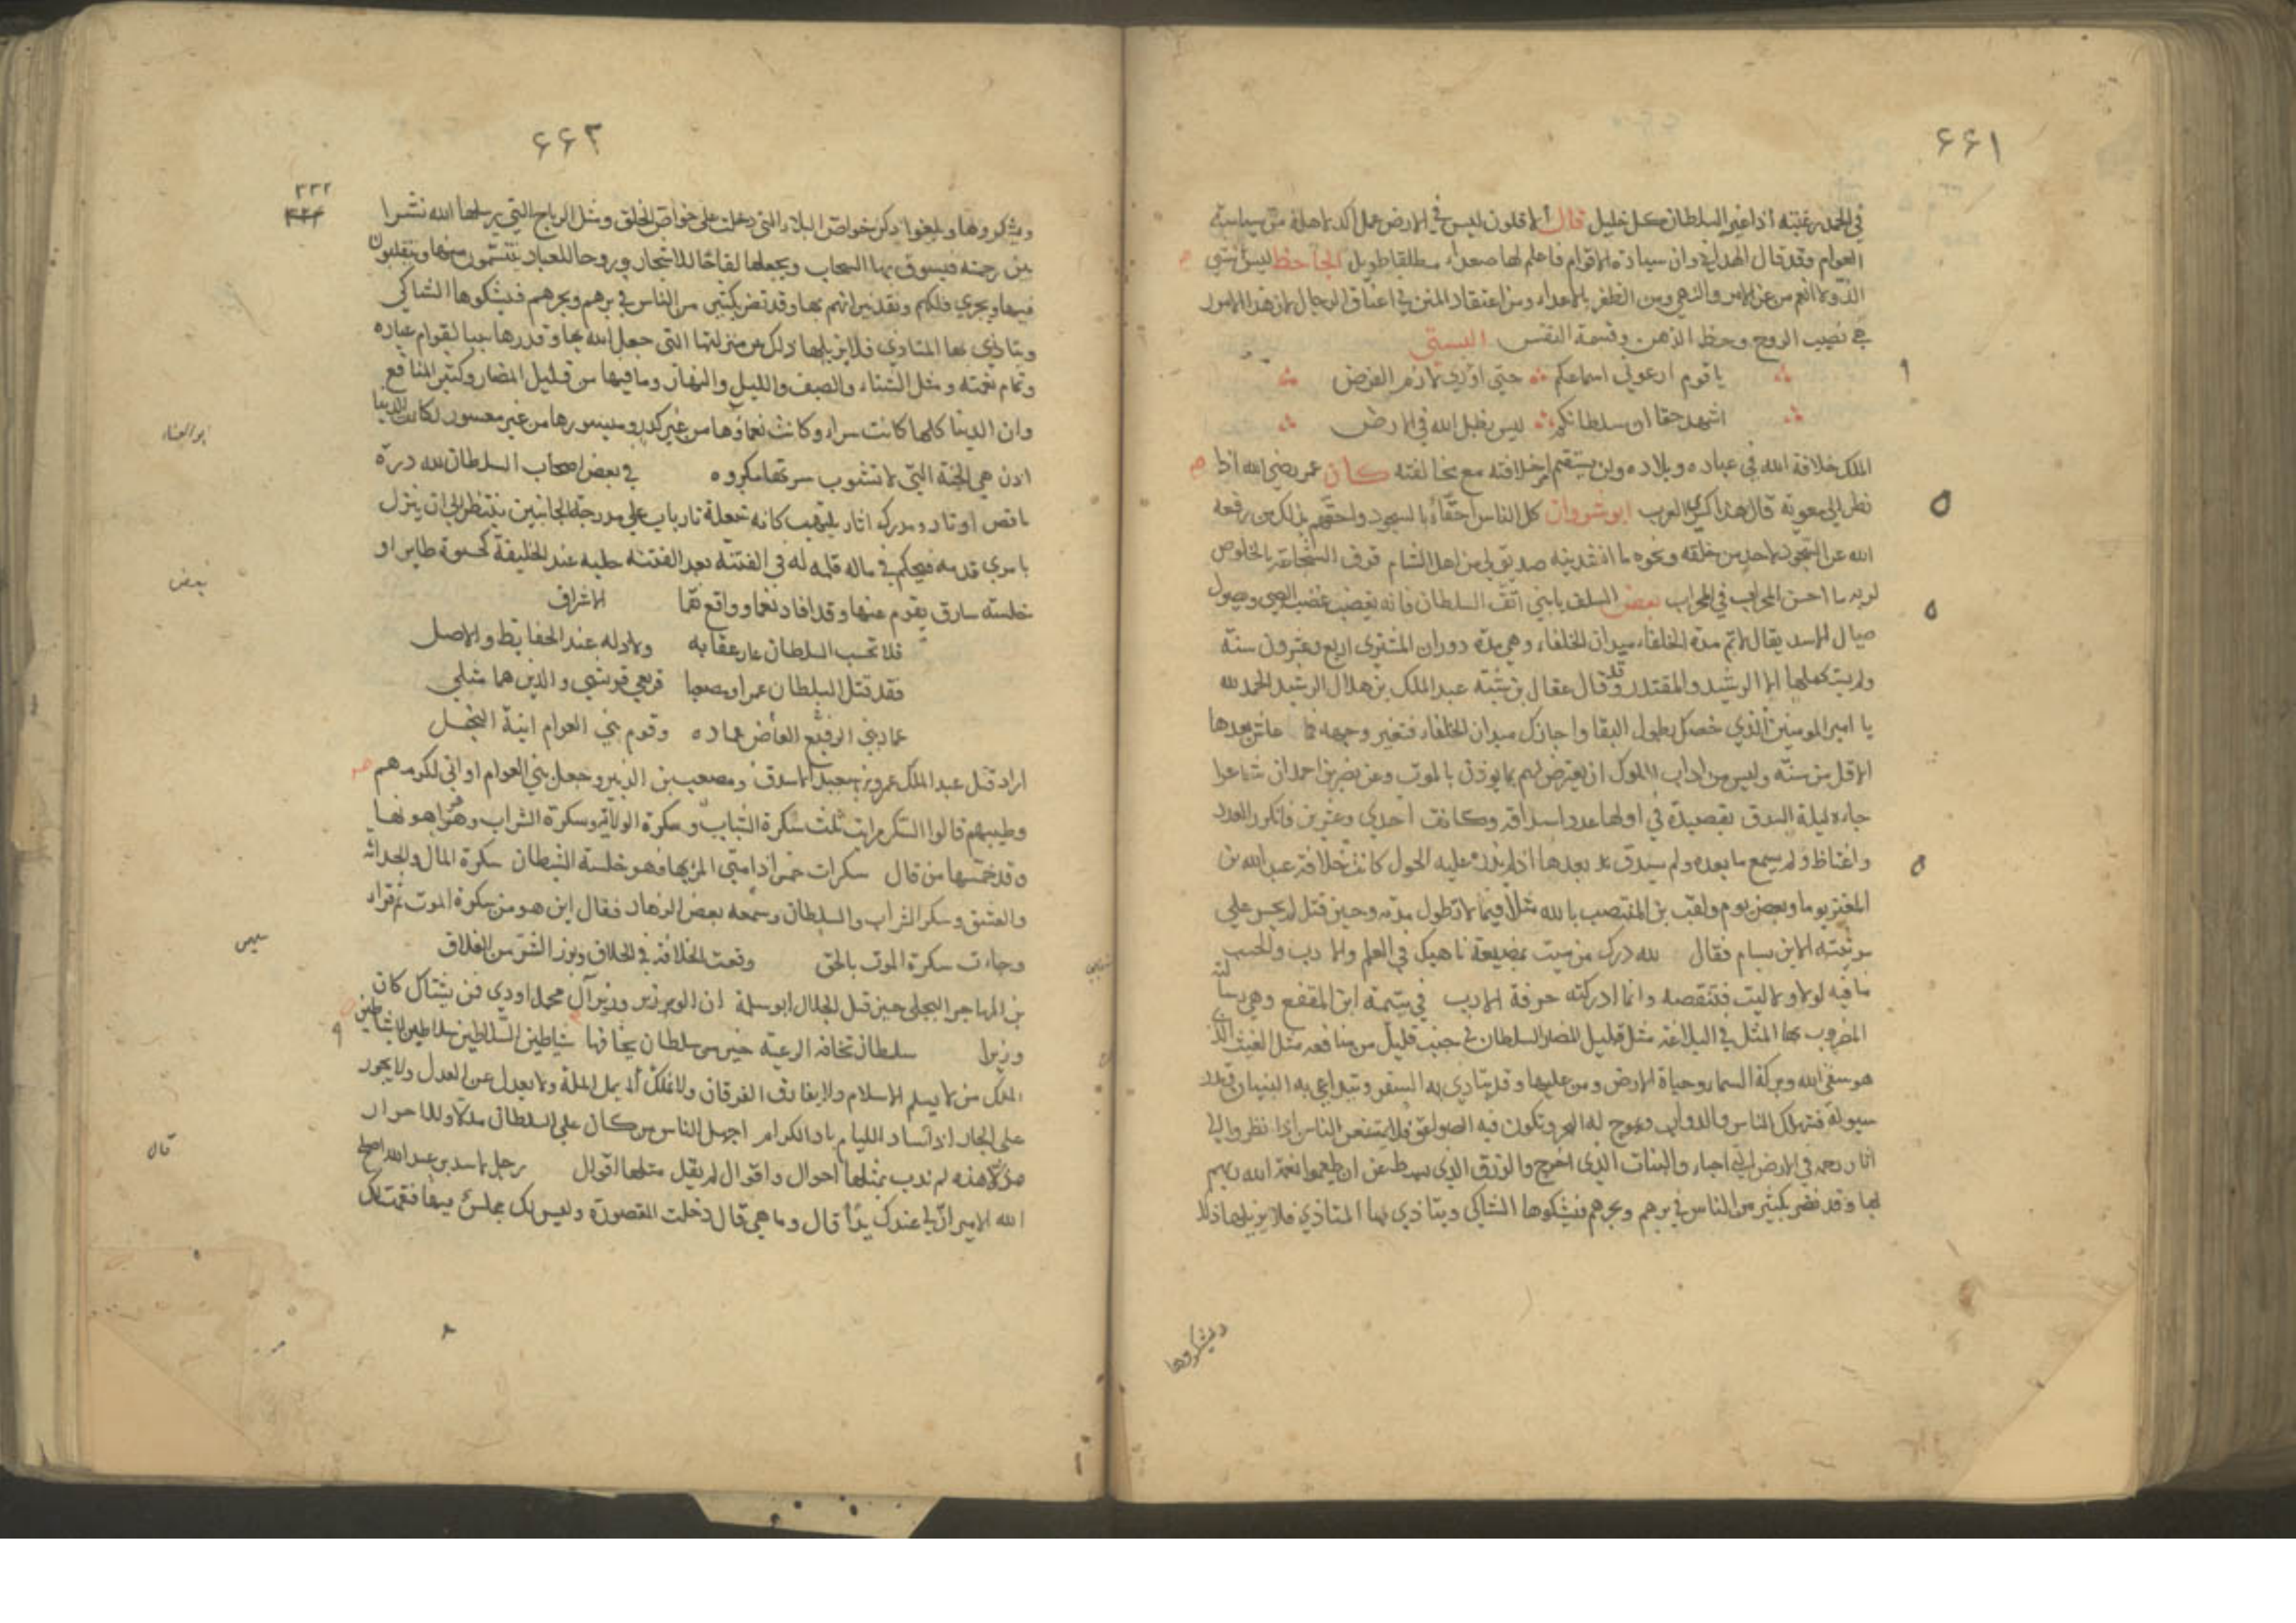 ٦٦١
في الحمد رغبته اذا غير السلطان كل خليل قال افلاطون ليس في الارض عمل اكد لاهله من سياسة
العوام وقد قال الهذلي وان سيادة الاقوام فاعلم لها صعداء مطلعها طويل الجاحظ ليس شي
الذ ولا انعم من عز الامر والنهي ومن الظفر بالاعداء ومن اعتقاد المنن في اعناق الرجال لان هذه الامور
هي نصيب الروح وحظ الذهن وقسمة النفس البستي
يا قوم ارعوني اسماعكم حتى اؤدي لازم الفرض
اشهد حقا ان سلطانكم ليس بظل الله في الارض
الملك خلافة الله في عباده وبلاده ولن يستقيم امر خلافته مع مخالفته كان عمر رضي الله اذا
نظر الى معوية قال هذا كسرى العرب انوشروان كل الناس احقاء بالسجود واحقهم بذلك من رفعه
الله عن السجود لاحد من خلقه ونحوه ما انشدنيه صديق لي من اهل الشام فوق الشجاعة بالخلوص
لربه ما احسن المحراب في المحراب بعض السلف يا بني اتق السلطان فانه يغضب غضب الصبي ويصول
صيال الاسد يقال لاتم مدة الخلفاء ميدان الخلفاء وهي مدة دوران المشتري اربع وعشرون سنة
ولم يستكملها الا الرشيد والمقتدر وقد قال عقال بن شبه عبد الملك بن هلال الرشيد الحمد لله
يا امير المومنين الذي خصك بطول البقا واجازك ميدان الخلفاء فتغير وجهه فما عاش بعدها
الا قل من سنة وليس من اداب الملوك ان يعترض لهم بما يوذن بالموت وعن نصر بن احمد ان شاعرا
جاءه ليلة السدق بقصيدة في اولها عدد اسداقه وكانت احدى وعشرين فانكر العدد
واغتاظ ولم يسمع ما بعده ولم يسدق بعدها اذ لم يدر عليه الحول كانت خلافة عبد الله بن
المعتز يوما وبعض يوم ولقب بن المنتصب بالله مثلا فيما لا تطول مدته وحين قتل لم يجسر على
مرثيته الا بن بسام فقال لله درك من ميت بمضيعة ناهيك في العلم والادب والحسب
ما فيه لو ولا ليت فتنقصه وانما ادركته حرفة الادب في يتيمة ابن المقفع وهي رسالته
المضروب بها المثل في البلاغة مثل قليل المضار السلطان في جنب قليل من منافعه مثل الغيث الذي
هو سقي الله وبركة السماء وحياة الارض ومن عليها وقد يتاذى به السفر ويتداعى به البنيان وتدر
سيوله فتهلك الناس والدواب ويموج له البحر وتكون فيه الصواعق فلا يمتنعن الناس اذا نظروا الى
اثار رحمة في الارض التي احياء والنبات الذي اخرج والرزق الذي بسط عن ان يعظموا نعمة الله ربهم
بها وقد تضر بكثير من الناس في برهم وبحرهم فيشكوها الشاكي ويتاذى بها المتاذي فلا يزيلها ذلك
ويشكروها
٦٦٢
٣٣٢
ويشكروها ويلغوا ذكر خواص البلاد التي دخلت على خواص الخلق ومثل الرياح التي يرسلها الله نشرا
بين رحمته فيسوق بها السحاب ويجعلها لقاحا للاشجار وروحا للعباد يتنسمون منها ويتقلبون
فيها ويجري فلكهم وتقد نيرانهم بها وقد تضر بكثير من الناس في برهم وبحرهم فيشكوها الشاكي
ويتاذى بها المتاذي فلا يزيلها ذلك عن منزلتها التي جعل الله بها وقدرها سببا لقوام عباده
وتمام نعمته ومثل الشتاء والصيف والليل والنهار وما فيها من قليل المضار وكثير المنافع
وان الدنيا كلها كانت سراء وكانت نعماؤها من غير كدر وميسورها من غير معسور لكانت الدنيا
اذن هي الجنة التي لا تشوب سرتها مكروه في بعض اصحاب السلطان لله دره
ناقص اوتار ومدرك اثار يلتهب كانه شعلة نار باب على مدرجة الجانبين ينتظر الى ان ينزل
يا مري قدمه فيحكم في ماله قلبه له في الفتنة بعد الفتنة جلبه عند الخليفة كحسوة طاير او
خلسة سارق يقوم عنها وقد افاد نعما وواقع نقما الاشراف
فلا تحسب السلطان عار عقابه ولا ذله عند الحفايظ والاصل
فقد قتل السلطان عمرا ومصعبا قريعي قريش والذين هما مثلي
عماد بني الرفيع العاص عماده وقوم بني العوام انية النخل
اراد قتل عبد الملك عمرو بن سعيد الاشدق ومصعب بن الزبير وجعل بني العوام اواني لكرمهم
وطيبهم قالوا السكرات ثلث سكرة الشباب وسكرة الولاية وسكرة الشراب وهو اهونها
وقد خمسها من قال سكرات خمس اذا مني المرء بها فهو خلسة الشيطان سكرة المال والحداثة
والعشق وسكر الشراب والسلطان وسمعه بعض الزهاد فقال اين هو من سكرة الموت ثم قراء
وجاءت سكرة الموت بالحق وقعت الخلافة في الخلاف
بن المهاجر البجلي حين قتل الخلال ابو سلمة ان الوزير وزير آل محمد اودى فمن يشناك كان
وزيرا سلطان تخافه الرعية خير من سلطان يخافها شياطين السلاطين سلاطين الشياطين
الملك من لا يسلم الاسلام ولا يفارق الفرقان ولا يمل الملة ولا يعدل عن العدل ولا يجور
على الجار اذا ساد الليام باد الكرام اجهل الناس من كان على السلطان مدلا وللاحرار
مذلا هذه لم ندب بمثلها احوال واقوال لم يقل مثلها اقوال رجل لاسد بن عبد الله اصلح
الله الامير ان لي عندك يدا قال وما هي قال دخلت المقصورة وليس لك مجلس فيها فقمت لك
ابو العيناء
بعض
قال